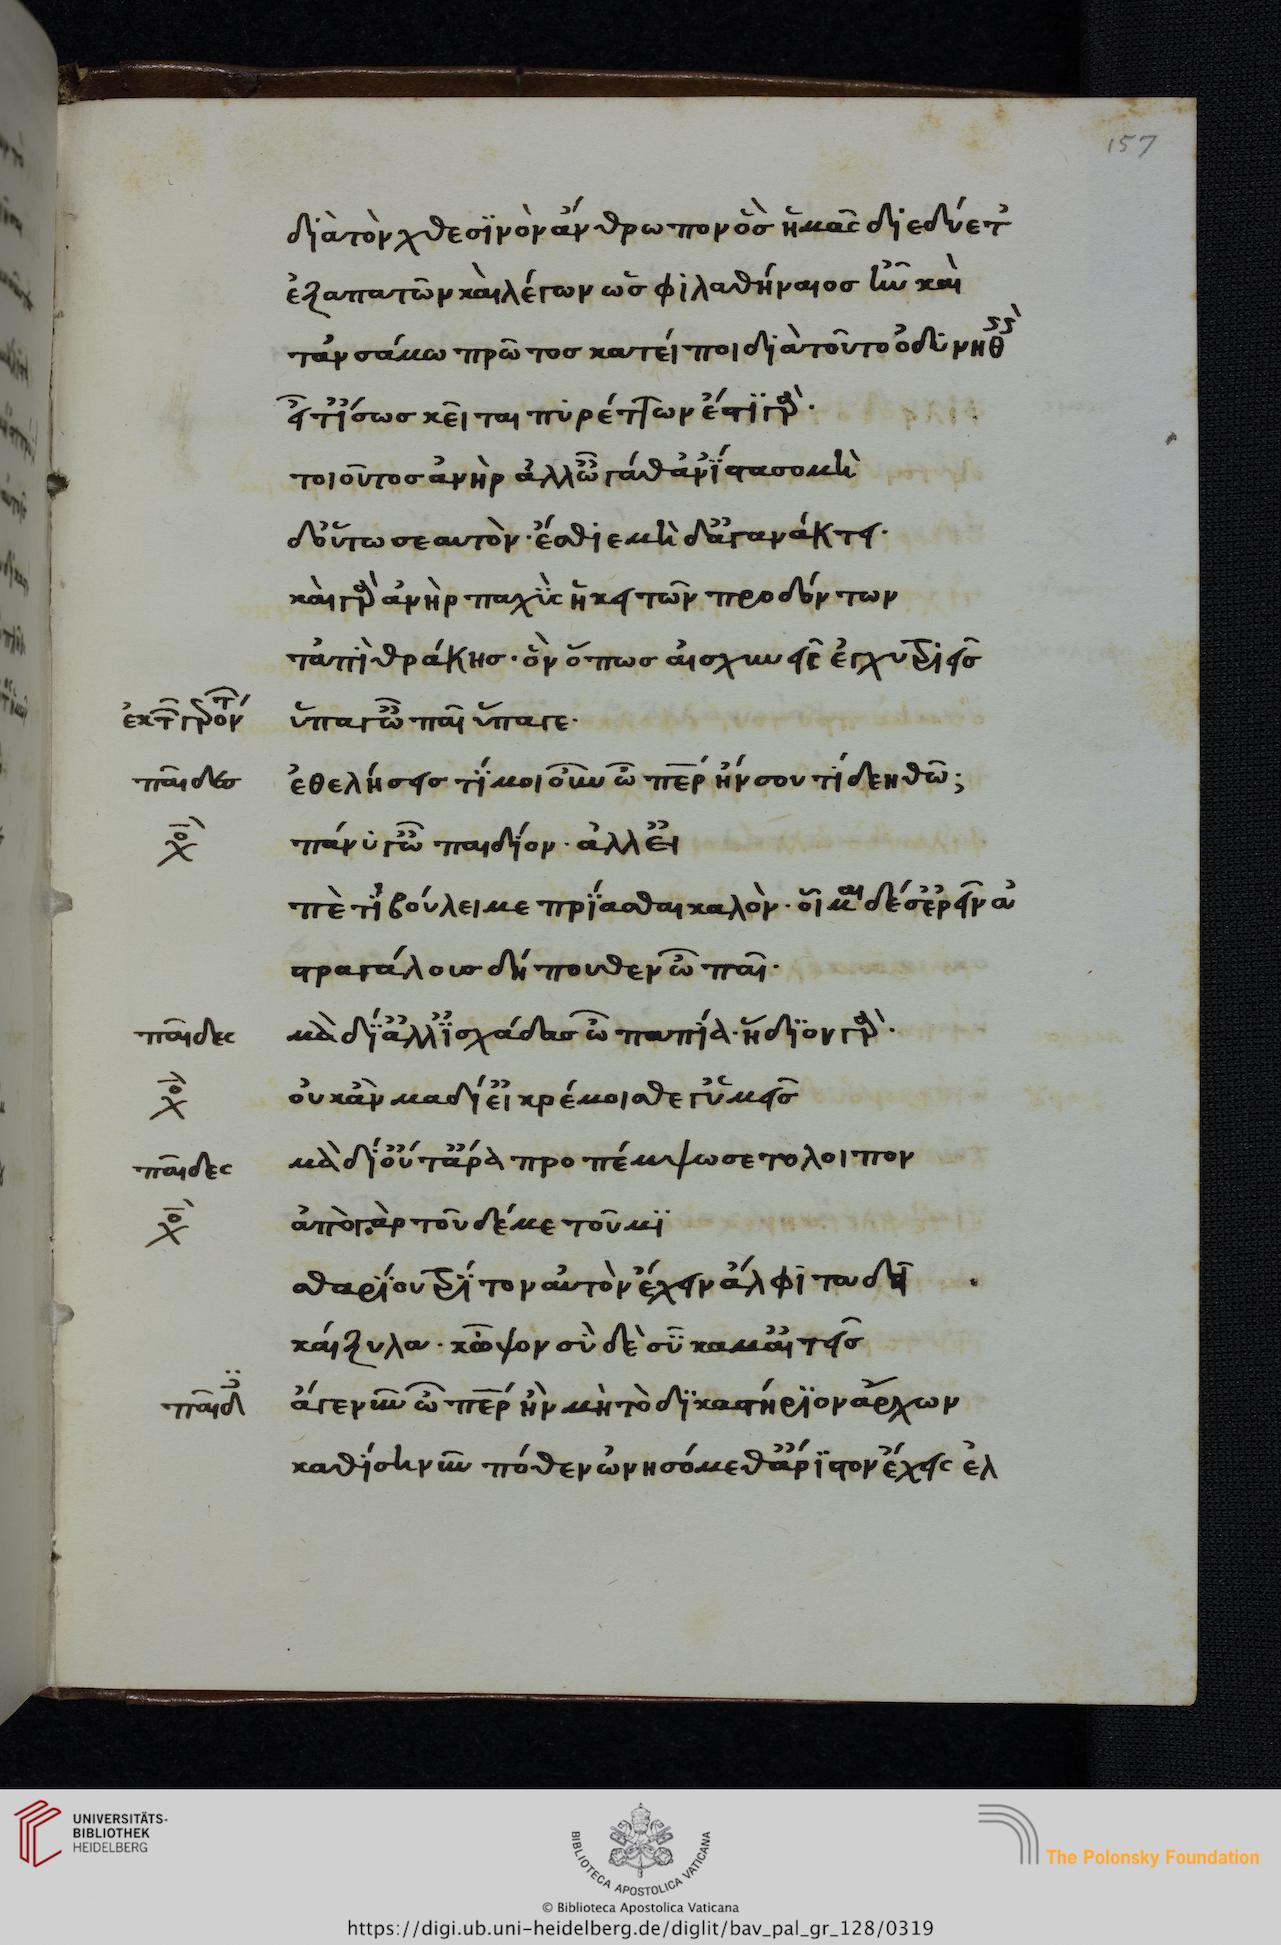 157
διὰ τὸν χθεσϊνὸν ἄνθρωπον ὃς ἡμᾶς διεδύετ'
ἐξαπατῶν καὶ λέγων ὡς φιλαθήναιος ἦν καὶ
τἀν σάμω πρῶτος κατείποι διὰ τοῦτο ὀδυνηθ
εἶτ' ἴσως κεῖται πυρέττων ἔστι γὰρ.
τοιοῦτος ἀνὴρ ἀλλ' ὦ γάθ' ἀνΐστασο μὴ
δ' οὕτω σεαυτὸν. ἔσθιε μὴ δ' ἀγανάκτει.
καὶ γὰρ ἀνὴρ παχὺς ἥκει τῶν προδόντων
τἀπὶ θράκης. ὃν ὅπως αἰσχυνεῖς ἐγχυτριεῖς
ὕπαγ' ὦ παῖ ὕπαγε.
παῖδες ἐθελήσεις τί μοι οὖν ὦ πάτερ ἤν σου τί δεηθῶ;
πάνυ γ' ὦ παιδίον. ἀλλ' εἰ
πὲ τί βούλει με πρίασθαι καλὸν. οἶμαι δέ σ' ἐρεῖν ἀ
στραγάλους δήπουθεν ὦ παῖ.
παῖδες μὰ δί' ἀλλ' ἰσχάδας ὦ παπία. ἥδϊον γὰρ.
οὐκ ἂν μα δί' εἰ κρέμοισθε γ' ὑμεῖς
παῖδες μὰ δί' οὔ τἄρα προπέμψω σε το λοιπον
ἀπὸ γὰρ τοῦδέ με τοῦ μι
σθαρίου τρίτον αὐτὸν ἔχειν ἄλφιτα δεῖ
καί ξυλα. κὤψον σὺ δὲ σῦκα μ' αἰτεῖς
ἄγε νυν ὦ πάτερ ἢν μὴ τὸ δϊκαστήρϊον ἄρχων
καθίσῃ νυν πόθεν ὠνησόμεθ' ἄριστον ἔχεις ἐλ
UNIVERSITÄTS-
BIBLIOTHEK
HEIDELBERG
BIBLIOTECA APOSTOLICA VATICANA
The Polonsky Foundation
© Biblioteca Apostolica Vaticana
https://digi.ub.uni-heidelberg.de/diglit/bav_pal_gr_128/0319